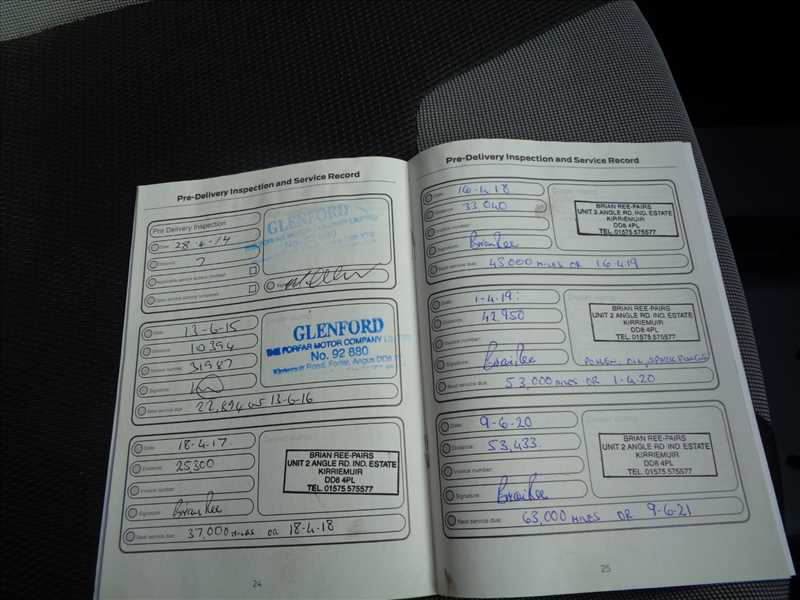 Pre-Delivery Inspection and Service Record
Pre Delivery Inspection
Date 28-6-14
Distance 7
GLENFORD
THE FORFAR MOTOR COMPANY LIMITED
Date: 13-6-15
Distance: 10394
Invoice number: 31987
Signature:
Next service due: 22,894 or 13-6-16
GLENFORD
THE FORFAR MOTOR COMPANY
No. 92 880
Kirriemuir Road, Forfar, Angus DD8
Date: 18-4-17
Distance: 25300
Invoice number:
Signature: Brian Ree
Next service due: 37,000 MILES OR 18-4-18
BRIAN REE-PAIRS
UNIT 2 ANGLE RD. IND. ESTATE
KIRRIEMUIR
DD8 4PL
TEL. 01575 575577
24
Pre-Delivery Inspection and Service Record
Date: 16-4-18
Distance: 33040
Invoice number:
Signature: Brian Ree
Next service due: 43,000 MILES OR 16-4-19
BRIAN REE-PAIRS
UNIT 2 ANGLE RD. IND. ESTATE
KIRRIEMUIR
DD8 4PL
TEL. 01575 575577
Date: 1-4-19:
Distance: 42950
Invoice number:
Signature: Brian Ree
Next service due: 53,000 MILES OR 1-4-20
BRIAN REE-PAIRS
UNIT 2 ANGLE RD. IND. ESTATE
KIRRIEMUIR
DD8 4PL
TEL. 01575 575577
POLLEN, OIL, SPARK PLUGS
Date: 9-6-20
Distance: 53,433
Invoice number:
Signature: Brian Ree
Next service due: 63,000 MILES OR 9-6-21
BRIAN REE-PAIRS
UNIT 2 ANGLE RD. IND. ESTATE
KIRRIEMUIR
DD8 4PL
TEL. 01575 575577
25